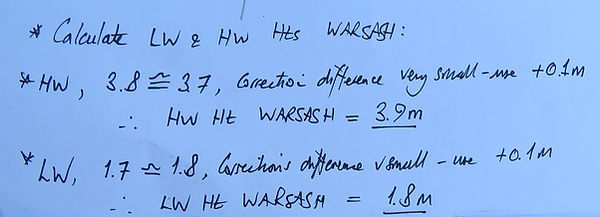 * Calculate LW & HW Hts WARSASH:
* HW, 3.8 ≅ 3.7, Correction difference very small - use +0.1m
∴ HW Ht WARSASH = 3.9m
* LW, 1.7 ≃ 1.8, Corrections difference v small - use +0.1m
∴ LW Ht WARSASH = 1.8m